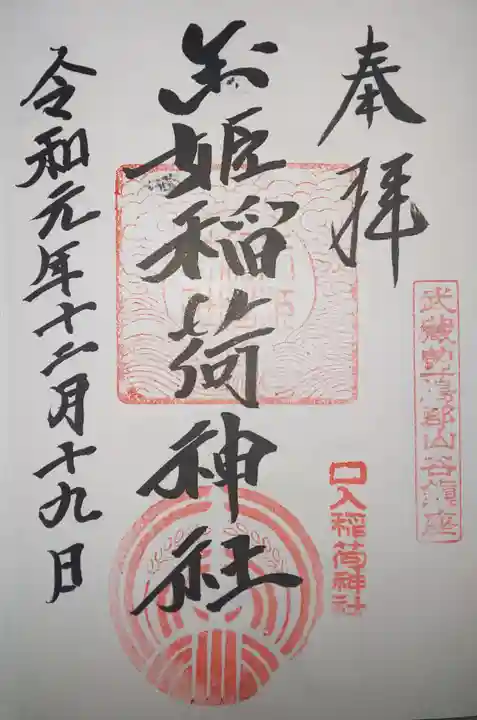 奉拝
武蔵
郡山谷鎮座
口入稲荷神社
玉姫稲荷神社
令和元年十二月十九日